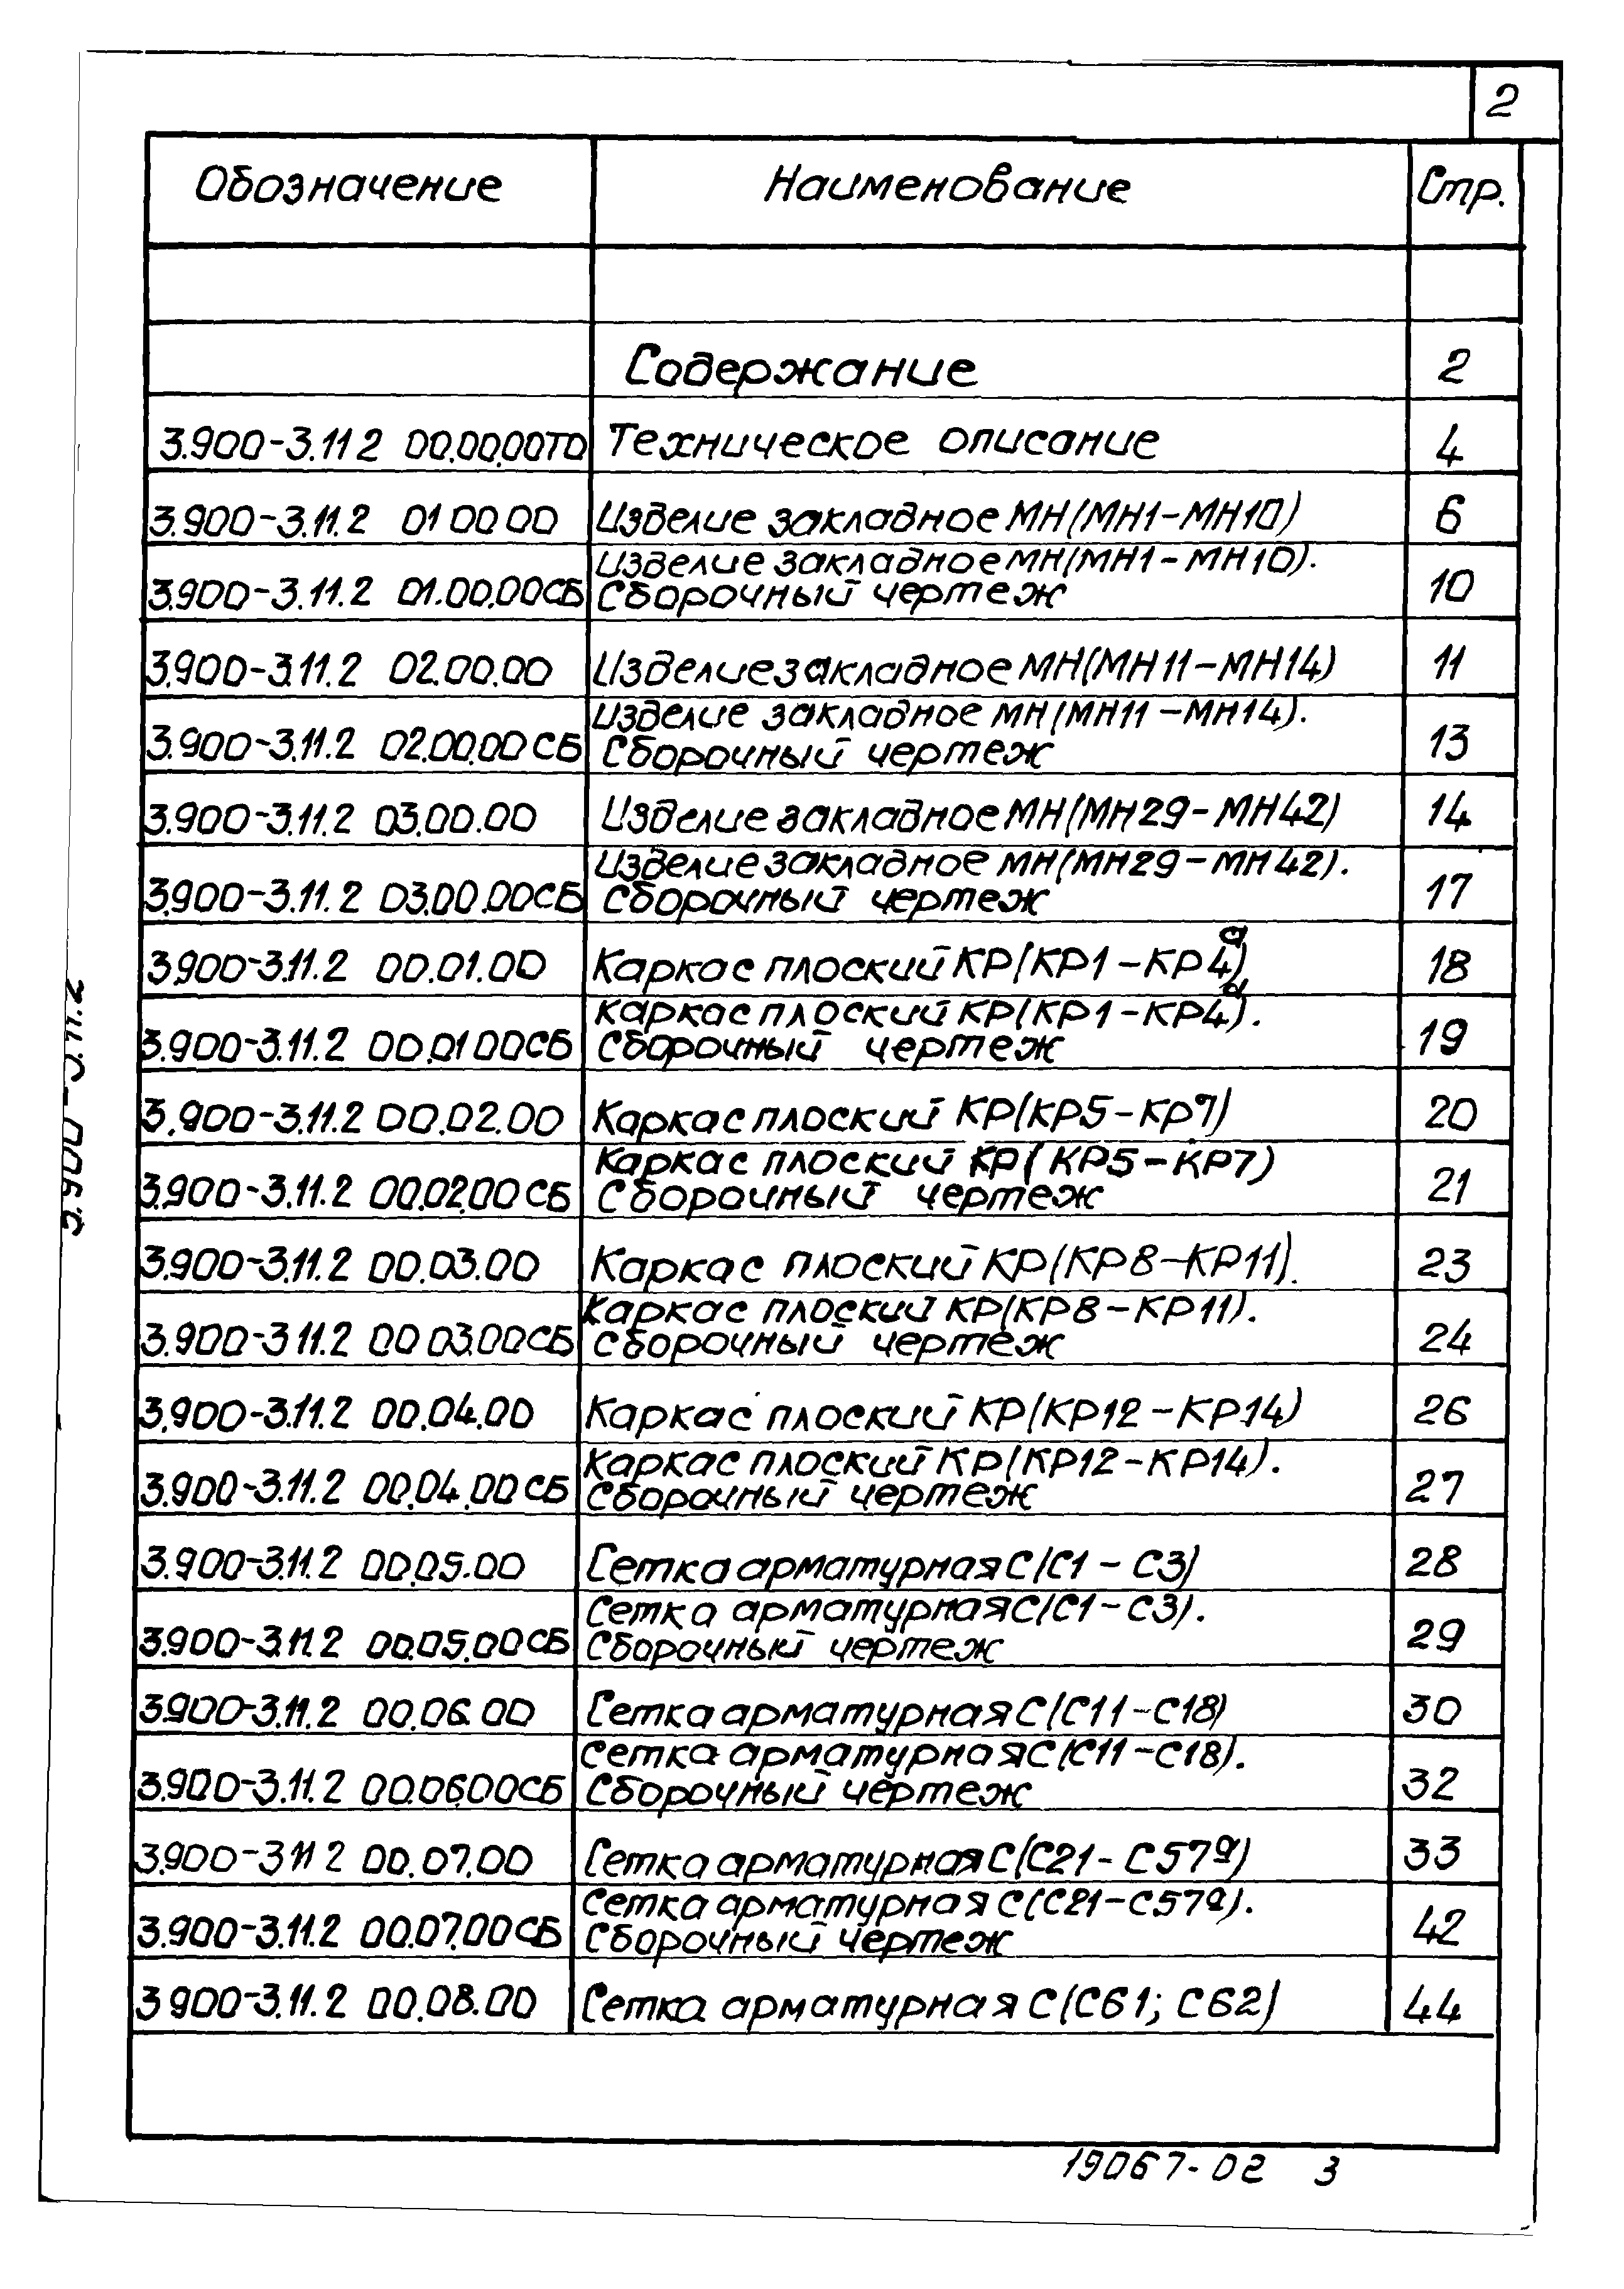 2
Обозначение Наименование Стр.
Содержание 2
3.900-3.11 2 00.00.00ТО Техническое описание 4
3.900-3.11.2 01 00 00 Изделие закладное МН(МН1-МН10) 6
Изделие закладное МН(МН1-МН10).
3.900-3.11.2 01.00.00СБ Сборочный чертеж 10
3.900-3.11.2 02.00.00 Изделие закладное МН(МН11-МН14) 11
Изделие закладное МН(МН11-МН14).
3.900-3.11.2 02.00.00 СБ Сборочный чертеж 13
3.900-3.11.2 03.00.00 Изделие закладное МН(МН29-МН42) 14
Изделие закладное МН(МН29-МН42).
3.900-3.11.2 03.00.00СБ Сборочный чертеж 17
3.900-3.11.2 00.01.00 Каркас плоский КР(КР1-КР4а) 18
Каркас плоский КР(КР1-КР4а).
3.900-3.11.2 00.01 00СБ Сборочный чертеж 19
3.900-3.11.2 00.02.00 Каркас плоский КР(КР5-КР7) 20
Каркас плоский КР(КР5-КР7)
3.900-3.11.2 00.02.00 СБ Сборочный чертеж 21
3.900-3.11.2 00.03.00 Каркас плоский КР(КР8-КР11). 23
Каркас плоский КР(КР8-КР11).
3.900-3.11.2 00 03.00СБ Сборочный чертеж 24
3.900-3.11.2 00.04.00 Каркас плоский КР(КР12-КР14) 26
Каркас плоский КР(КР12-КР14).
3.900-3.11.2 00.04.00 СБ Сборочный чертеж 27
3.900-3.11.2 00.05.00 Сетка арматурная С(С1-С3) 28
Сетка арматурная С(С1-С3).
3.900-3.11.2 00.05.00СБ Сборочный чертеж 29
3.900-3.11.2 00.06.00 Сетка арматурная С(С11-С18) 30
Сетка арматурная С(С11-С18).
3.900-3.11.2 00.06.00СБ Сборочный чертеж 32
3.900-3 11 2 00.07.00 Сетка арматурная С(С21-С57а) 33
Сетка арматурная С(С21-С57а).
3.900-3.11.2 00.07.00СБ Сборочный чертеж 42
3 900-3.11.2 00.08.00 Сетка арматурная С(С61; С62) 44
3.900-3.11.2
19067-02 3